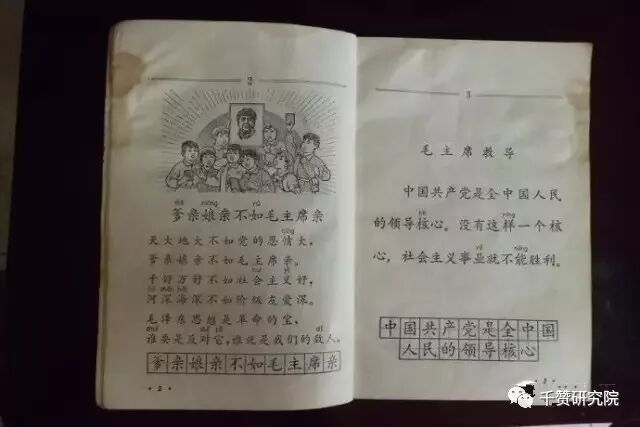 2
diē niáng rú
爹亲娘亲不如毛主席亲
qíng
天大地大不如党的恩情大,
爹亲娘亲不如毛主席亲。
千好万好不如社会主义好,
河深海深不如阶级友爱深。
毛泽东思想是革命的宝,
谁要是反对它,谁就是我们的敌人。
爹亲娘亲不如毛主席亲
·2·
3
毛主席教导
中国共产党是全中国人民
hé yàng
的领导核心。没有这样一个核
yè néng
心,社会主义事业就不能胜利。
中国共产党是全中国
人民的领导核心
·3·
千赞研究院